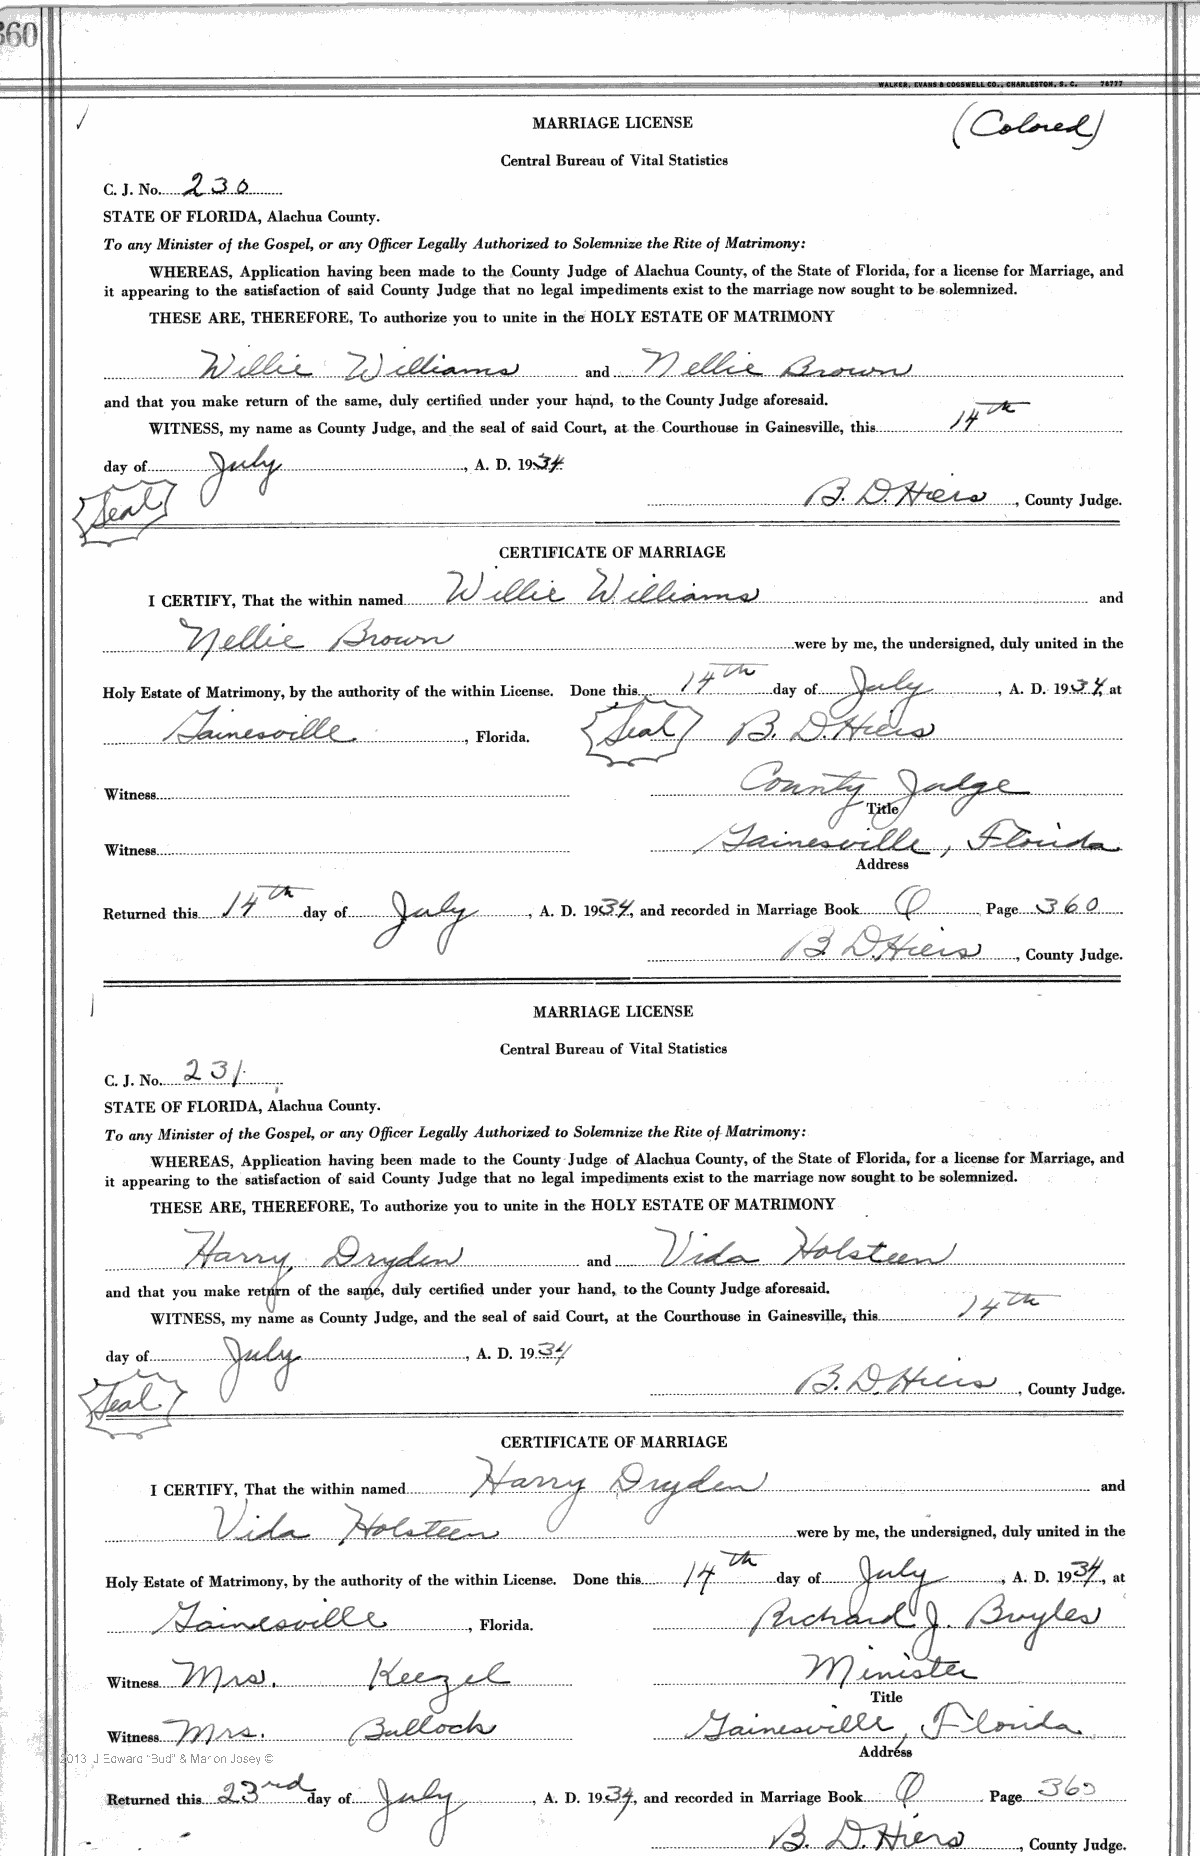 360
WALKER, EVANS & COGSWELL CO., CHARLESTON, S. C. 78777
MARRIAGE LICENSE
(Colored)
Central Bureau of Vital Statistics
C. J. No. 230
STATE OF FLORIDA, Alachua County.
To any Minister of the Gospel, or any Officer Legally Authorized to Solemnize the Rite of Matrimony:
WHEREAS, Application having been made to the County Judge of Alachua County, of the State of Florida, for a license for Marriage, and
it appearing to the satisfaction of said County Judge that no legal impediments exist to the marriage now sought to be solemnized.
THESE ARE, THEREFORE, To authorize you to unite in the HOLY ESTATE OF MATRIMONY
Willie Williams and Nellie Brown
and that you make return of the same, duly certified under your hand, to the County Judge aforesaid.
WITNESS, my name as County Judge, and the seal of said Court, at the Courthouse in Gainesville, this 14th
day of July, A. D. 1934
Seal B. D. Hiers, County Judge.
CERTIFICATE OF MARRIAGE
I CERTIFY, That the within named Willie Williams and
Nellie Brown were by me, the undersigned, duly united in the
Holy Estate of Matrimony, by the authority of the within License. Done this 14th day of July, A. D. 1934, at
Gainesville, Florida. Seal B. D. Hiers
Witness County Judge
Title
Witness Gainesville, Florida
Address
Returned this 14th day of July, A. D. 1934, and recorded in Marriage Book Q Page 360
B. D. Hiers, County Judge.
MARRIAGE LICENSE
Central Bureau of Vital Statistics
C. J. No. 231
STATE OF FLORIDA, Alachua County.
To any Minister of the Gospel, or any Officer Legally Authorized to Solemnize the Rite of Matrimony:
WHEREAS, Application having been made to the County Judge of Alachua County, of the State of Florida, for a license for Marriage, and
it appearing to the satisfaction of said County Judge that no legal impediments exist to the marriage now sought to be solemnized.
THESE ARE, THEREFORE, To authorize you to unite in the HOLY ESTATE OF MATRIMONY
Harry Dryden and Vida Holsteen
and that you make return of the same, duly certified under your hand, to the County Judge aforesaid.
WITNESS, my name as County Judge, and the seal of said Court, at the Courthouse in Gainesville, this 14th
day of July, A. D. 1934
Seal B. D. Hiers, County Judge.
CERTIFICATE OF MARRIAGE
I CERTIFY, That the within named Harry Dryden and
Vida Holsteen were by me, the undersigned, duly united in the
Holy Estate of Matrimony, by the authority of the within License. Done this 14th day of July, A. D. 1934, at
Gainesville, Florida. Richard J. Broyles
Witness Mrs. Keezel Minister
Title
Witness Mrs. Bullock Gainesville, Florida
Address
2013 J Edward "Bud" & Marion Josey ©
Returned this 23rd day of July, A. D. 1934, and recorded in Marriage Book Q Page 360
B. D. Hiers, County Judge.